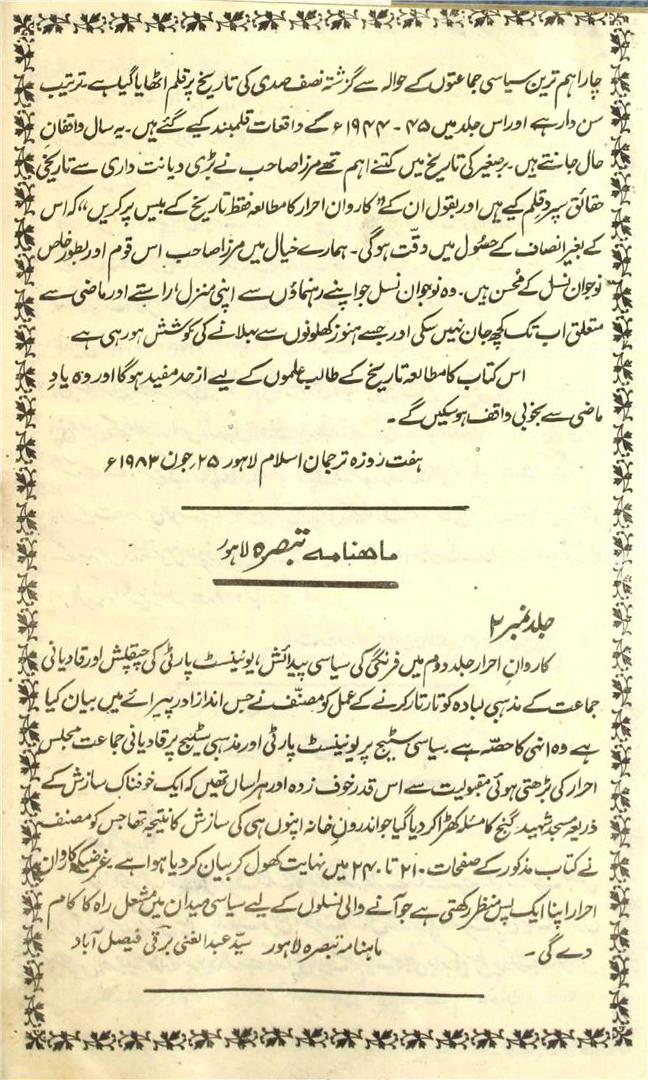 چار اہم ترین سیاسی جماعتوں کے حوالہ سے گزشتہ نصف صدی کی تاریخ پر قلم اٹھایا گیا ہے۔ ترتیب
سن دار ہے اور اس جلد میں ۴۵-۱۹۴۴ء کے واقعات قلمبند کیے گئے ہیں۔ یہ سال واقفان
حال جانتے ہیں۔ برصغیر کی تاریخ میں کتنے اہم تھے مرزا صاحب نے بڑی دیانت داری سے تاریخی
حقائق سپرد قلم کیے ہیں اور بقول ان کے "کاروان احرار کا مطالعہ فقط تاریخ کے بیس پر کریں" کہ اس
کے بغیر انصاف کے حصُول میں دقّت ہوگی۔ ہمارے خیال میں مرزا صاحب اس قوم اور بطور خاص
نوجوان نسل کے محُسن ہیں۔ وہ نوجوان نسل جو اپنے رہنماؤں سے اپنی منزل، راستے اور ماضی سے
متعلق اب تک کچھ جان نہیں سکی اور جسے ہنوز کھلونوں سے بہلانے کی کوشش ہو رہی ہے
اس کتاب کا مطالعہ تاریخ کے طالب علموں کے لیے از حد مفید ہوگا اور وہ یادِ
ماضی سے بخوبی واقف ہوسکیں گے۔
ہفت روزہ ترجمان اسلام لاہور ۲۵ جون ۱۹۸۳ء
ماھنامہ تبصرہ لاہور
جلد نمبر ۲
کاروانِ احرار جلد دوم میں فرنگی کی سیاسی پیدائش، یونینسٹ پارٹی کی چپقلش اور قادیانی
جماعت کے مذہبی لبادہ کو تار تار کرنے کے عمل کو مصنّف نے جس انداز اور پیرائے میں بیان کیا
ہے وہ انہی کا حصّہ ہے۔ سیاسی سٹیج پر یونینسٹ پارٹی اور مذہبی سٹیج پر قادیانی جماعت مجلس
احرار کی بڑھتی ہوئی مقبولیت سے اس قدر خوف زدہ اور ہراساں تھیں کہ ایک خوفناک سازش کے
ذریعہ مسجد شہید گنج کا مسئلہ کھڑا کر دیا گیا جو اندرونِ خانہ اپنوں ہی کی سازش کا نتیجہ تھا جس کو مصنف
نے کتاب مذکور کے صفحات ۲۱۰ تا ۲۴۰ میں نہایت کھول کر بیان کر دیا ہوا ہے۔ غرضیکہ کاروانِ
احرار اپنا ایک پس منظر رکھتی ہے جو آنے والی نسلوں کے لیے سیاسی میدان میں مشعل راہ کا کام
دے گی۔ ماہنامہ تبصرہ لاہور سیّد عبدالغنی برقی فیصل آباد